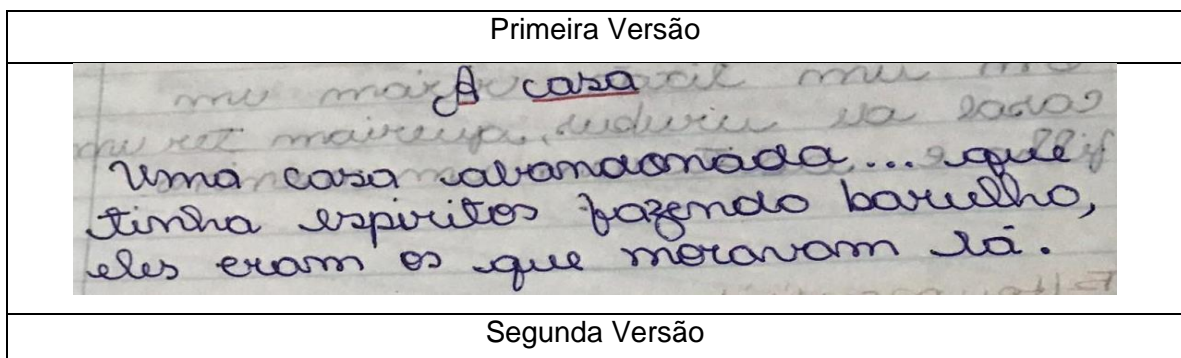 Primeira Versão
A casa
Uma casa abandonada... que
tinha espiritos fazendo barulho,
eles eram os que moravam lá.
Segunda Versão